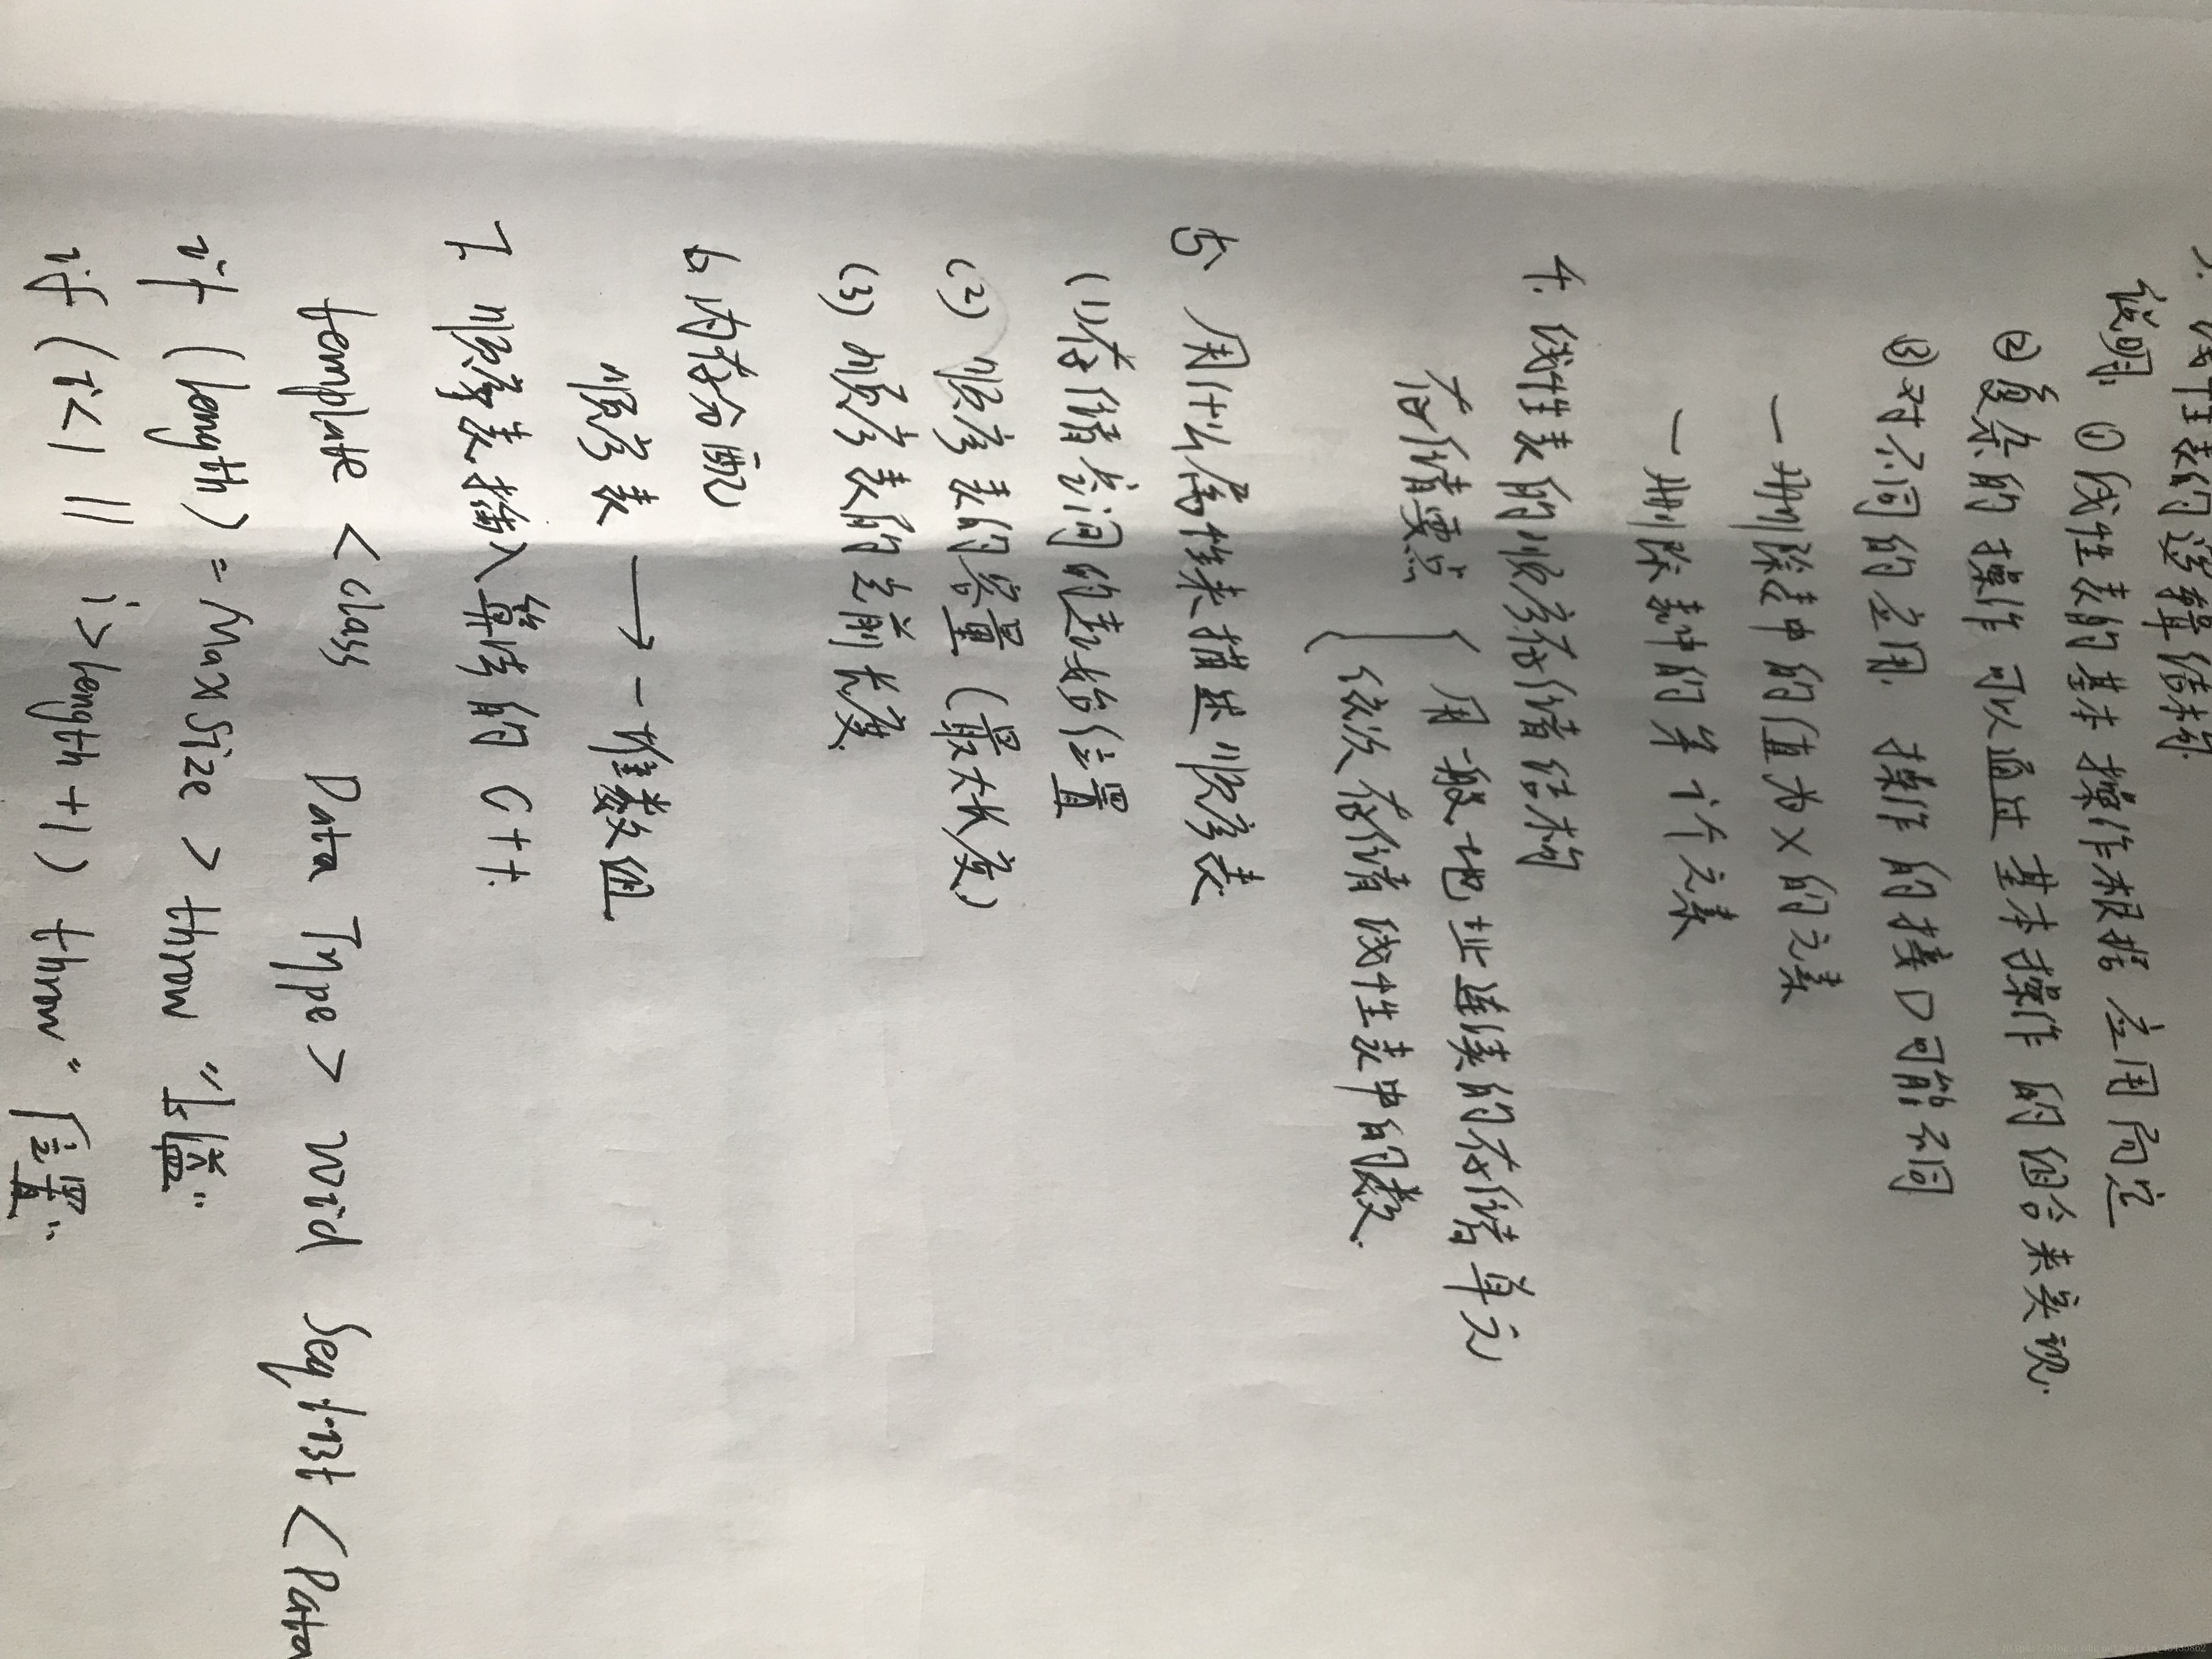 3. 线性表的运算结构
说明: ①线性表的基本操作根据 应用而定
②复杂的操作 可以通过 基本操作 的组合来实现.
③对不同的应用, 操作的接口可能不同
— 删除表中的值为x的元素
— 删除表中的第i个元素
4. 线性表的顺序存储结构
存储要点 { 用一般地址连续的存储单元
依次存储线性表中的数.
5 用什么属性来描述顺序表.
(1)存储空间的起始位置
(2) 顺序表的容量 (最大长度)
(3) 顺序表的当前长度
6 内存分配
顺序表 → 一维数组.
7. 顺序表插入算法的 C++.
template < class Data Type > void SeqList < Data
if (length) = MaxSize > throw "上溢"
if (i<1 || i>length+1) throw "位置"